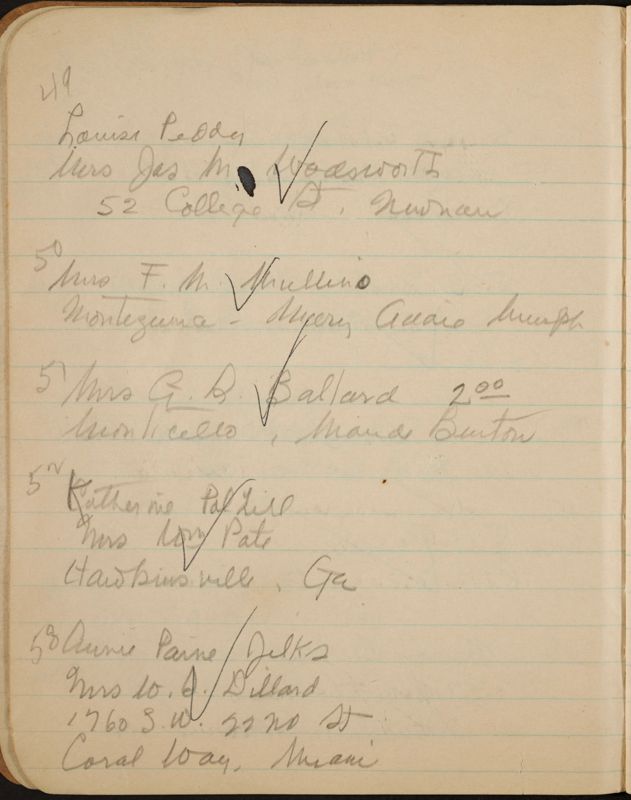 49
Louise Peddy
Mrs Jas M. Wadsworth
52 College St, Newnan
50 Mrs F. M. Mullino
Montezuma - Mary Addie Murph
51 Mrs G. B. Ballard 2 00
Monticello, Maude Benton
52 Katherine
Mrs Wm Pate
Hawkinsville, Ga
53 Annie Paine Jelks
Mrs W. J. Dillard
1760 S.W. 22nd St
Coral Way, Miami